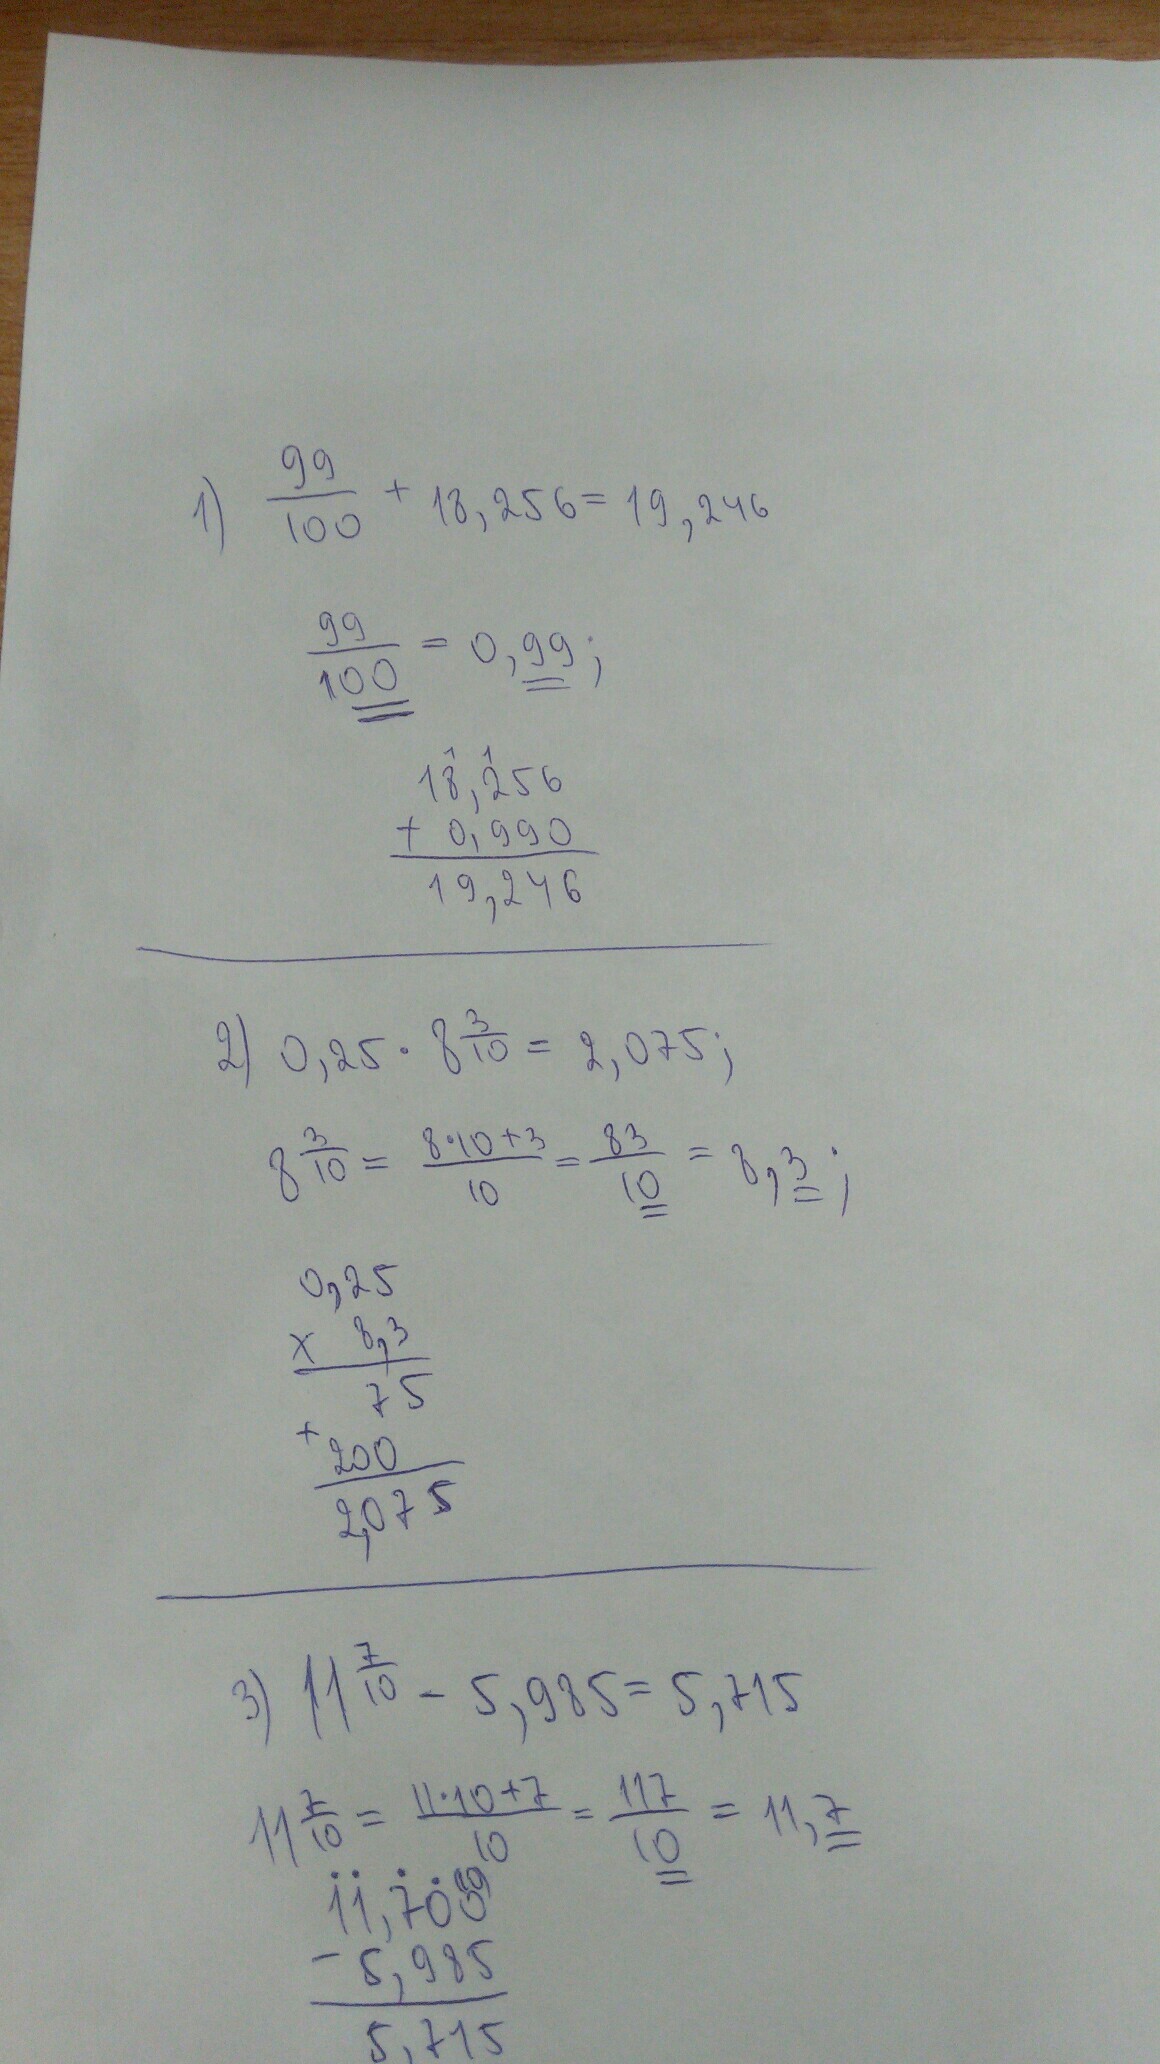 1) 99/100 + 18,256 = 19,246
99/100 = 0,99;
1 1
18,256
+ 0,990
19,246
2) 0,25 · 8 3/10 = 2,075;
8 3/10 = 8·10+3/10 = 83/10 = 8,3;
0,25
x 8,3
75
+ 200
2,075
3) 11 7/10 - 5,985 = 5,715
11 7/10 = 11·10+7/10 = 117/10 = 11,7
11,700
- 5,985
5,715